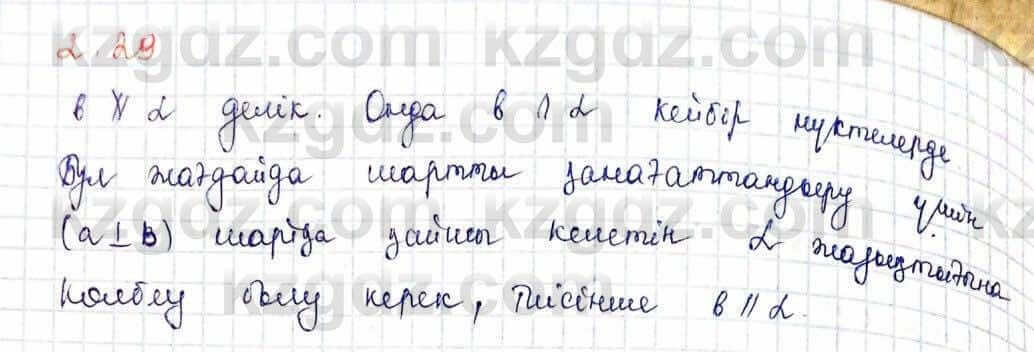 2.29
в ∦ α делік. Онда в ∩ α кейбір нүктелерде.
Бұл жағдайда шартты қанағаттандыру үшін
(a ⊥ b) шартқа қайшы келетін α жазықтығына
көлбеу болу керек, тиісінше в || α.
kzgdz.com kzgdz.com
kzgdz.com kzgdz.com kzgdz.com